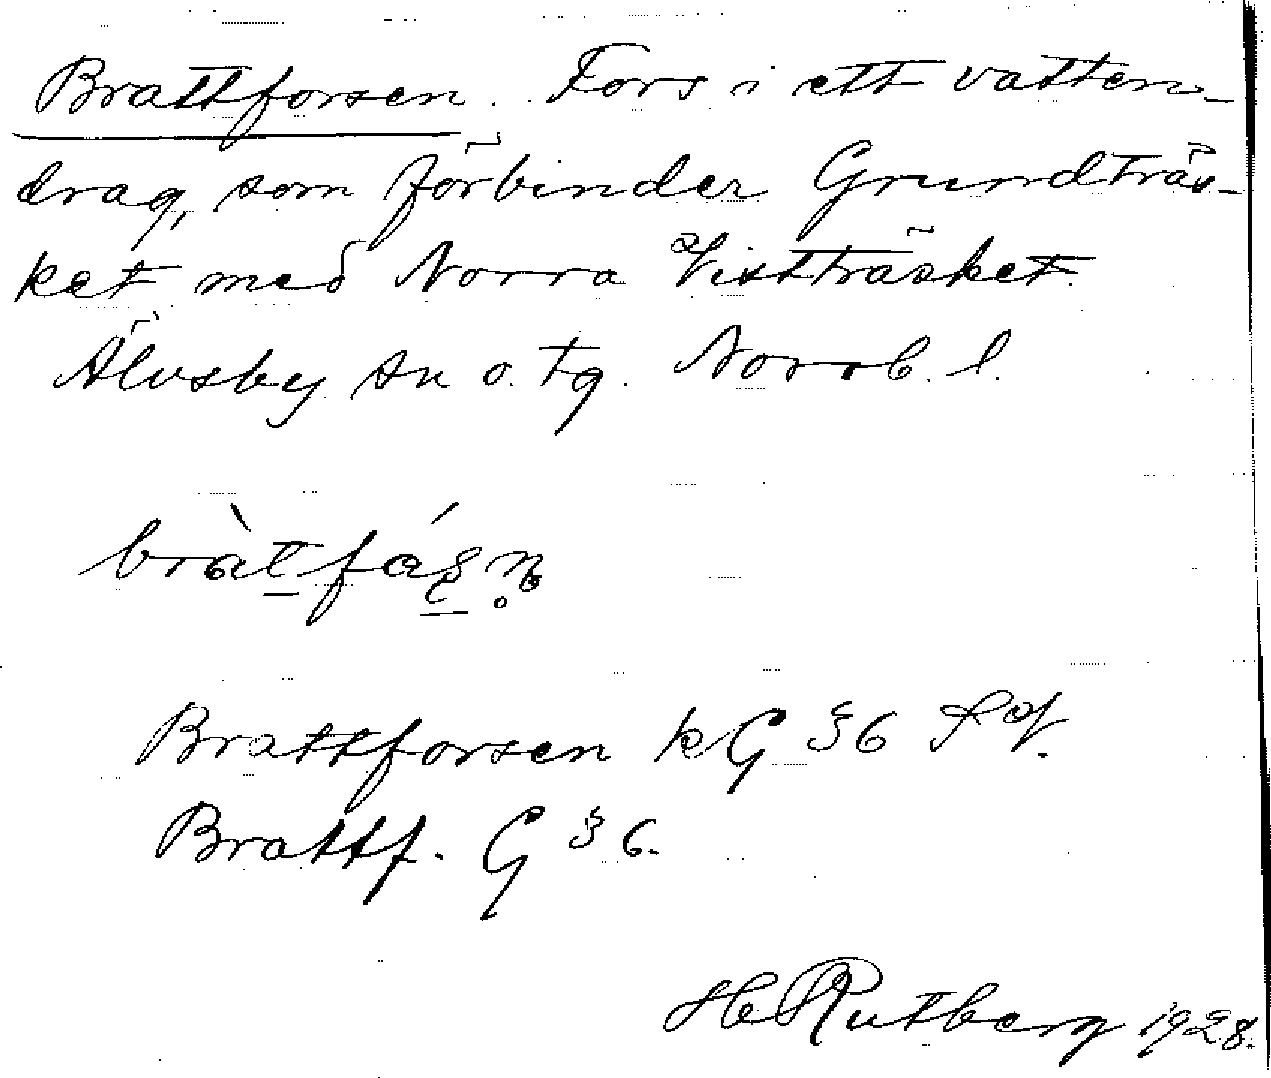 Brattforsen. Fors i ett vatten-
drag, som förbinder Grundträs-
ket med Norra Vistträsket.
Älvsby sn o. tg. Norrb. l.
bràtfáʂn̥
Brattforsen kG § 6
Brattf. G § 6.
H Rutberg 1928.